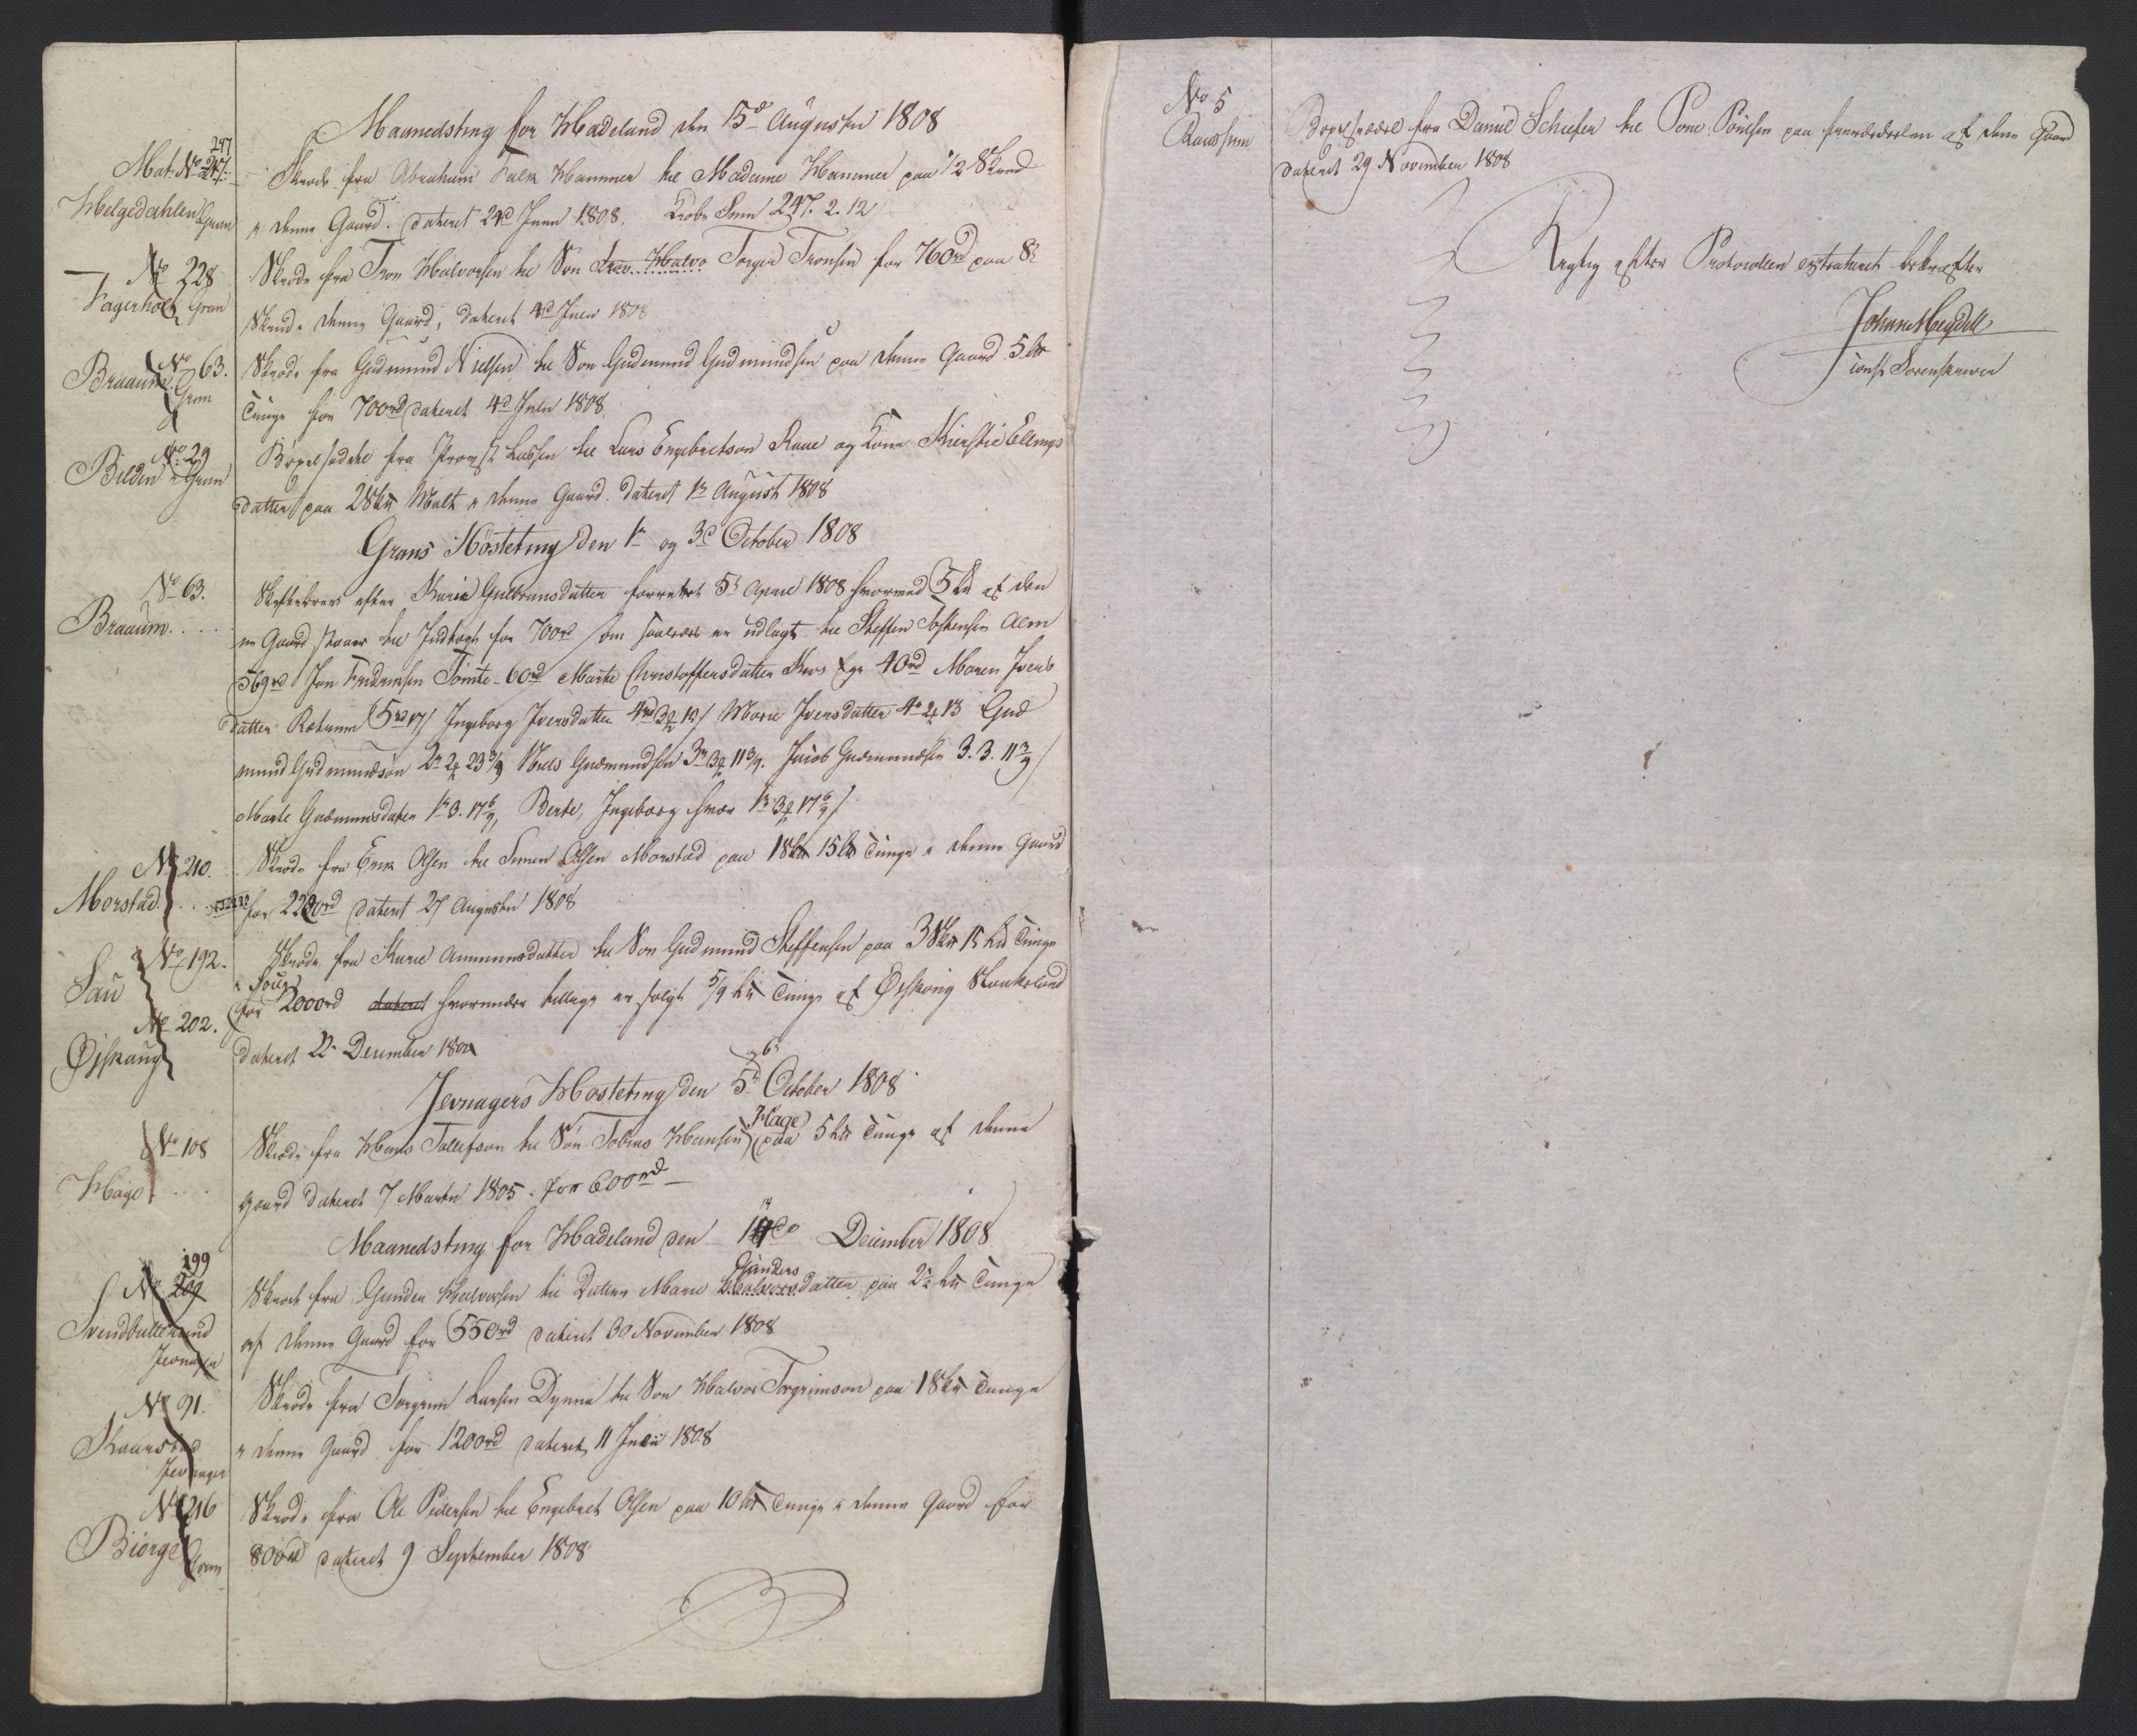 Maanedsting for Hadeland den 15de Augustii 1808
247
Mat. No 247.
Helgedahlen Gran
Skiøde fra Abraham Falk Hammer til Madame Hammer paa 1/2 Skind
i denne Gaard. dateret 24d Junii 1808. Kiøbe Sum 247. 2. 12
No 228
Hagerholt Gran
Skiøde fra Tron Halvorsen til Søn Tron Halvo Torger Tronsen for 760rd paa 8
Skind i denne Gaard, dateret 4d Junii 1808
No 63.
Braaum Gran
Skiøde fra Gudmund Nielsen til Søn Gudmund Gudmundsen paa denne Gaard 5 l℔
Tunge for 700rd dateret 4d Julii 1808
No 29
Bilden Gran
Bøxelseddel fra Provst Lassen til Lars Engebretson Raae og Kone Kierstie Ellings
datter paa 2 Sk℔ Malt i denne Gaard. dateret 1te August 1808
Grans Høsteting den 1te og 3d October 1808
No 63.
Braaum . . . . .
Skiftebrev efter Karie Gulbransdatter forrettet 5t April 1808 hvorved 5 l℔ af den
ne Gaard staaer til Indtægt for 700rd som saaledes er udlagt til Steffen Alm
569rd Jon Tomte 60rd Marte Christoffersdatter 40rd Maren Ivers
datter 5rd 17/ Ingeborg Iversdatter 4rd 3 Marie Iversdatter 4r 2 13 Gud
mund Gudmundsøn 2r 2 23 3/9 Niels Gudmundsen 3r 3 11 3/9. Jacob Gudmundsen 3. 3. 11 3/9/
Marte Gudmundsdatter 1r 3. 17 6/9, Berte, Ingeborg hver 1r 3 17 6/9/
No 210.
Morstad . . .
Skiøde fra Erik Olsen til Simen Olsen Morstad paa 1 Sk℔ 15 l℔ Tunge i denne Gaard
for 2200rd dateret 27 Augustii 1808
No 192.
Sau
No 202.
Øiskaug
Skiøde fra Karie Ammundsdatter til Søn Gudmund Steffensen paa 3 Sk℔ 15 l℔ Tunge
i Souг
for 2000rd dateret hvorunder tillige er solgt 5/9 l℔ Tunge af Øiskoug
dateret 22 December 180
6t
Jevnagers Høsteting den 5t October 1808
No 108
Hage . . . .
Hage
Skiøde fra Hans Tollefson til Søn Tobias Hansen paa 5 l℔ Tunge af denne
Gaard dateret 7 Martii 1805. for 600rd
Maanedsting for Hadeland den 14de December 1808
199
No 209
Svendbutterud
Jevnager
Gunders
Skiøde fra Gunder Halvorsen til Datter Marie Halvors datter paa 2 1/2 l℔ Tunge
af denne Gaard for 550rd dateret 30 November 1808
No 91.
Kaarstad
Jevnager
Skiøde fra Torgrim Larsen Dynna til Søn Halvor Torgrimson paa 1 Sk℔ Tunge
i denne Gaard for 1200rd dateret 11 Julii 1808
No 216
Biørge Gran
Skiøde fra Ole Pedersen til Engebret Olsen paa 10 l℔ Tunge i denne Gaard for
800rd dateret 9 September 1808
No 5
Raassum
Bøxelseddel fra Daniel Schiefer til Poul Poulsen paa af denne Gaard
dateret 29 November 1808
Rigtig efter Protocollen extraheret bekræfter
Sorenskriver